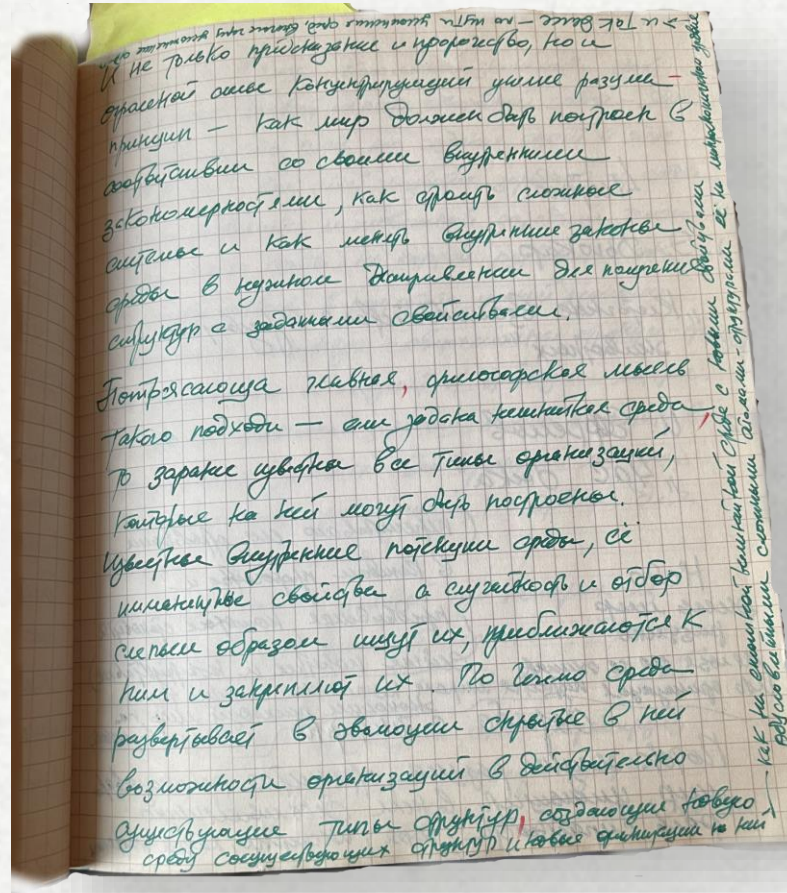 И не только предсказание и пророчество, но и
концентрирующий усилие разума
принцип — как мир должен быть построен в
соответствии со своими внутренними
закономерностями, как строить сложные
системы и как менять внутренние законы
среды в нужном направлении для получения
структур с заданными свойствами.
Потрясающа главная, философская мысль
такого подхода — если задана нелинейная среда,
то заранее известны все типы организаций,
которые на ней могут быть построены.
Известны внутренние потенции среды, её
имманентные свойства а случайность и отбор
слепым образом ищут их, приближаются к
ним и закрепляют их. По
среда
развертывает в эволюции скрытые в ней
возможности организаций в действительно
существующие типы структур, создающие новую
среду сосуществующих структур и новые организации на ней
— как на
среде с новыми свойствами
обусловленными сложными атомами-структурами её
→ и так далее — по пути усложнения сред,